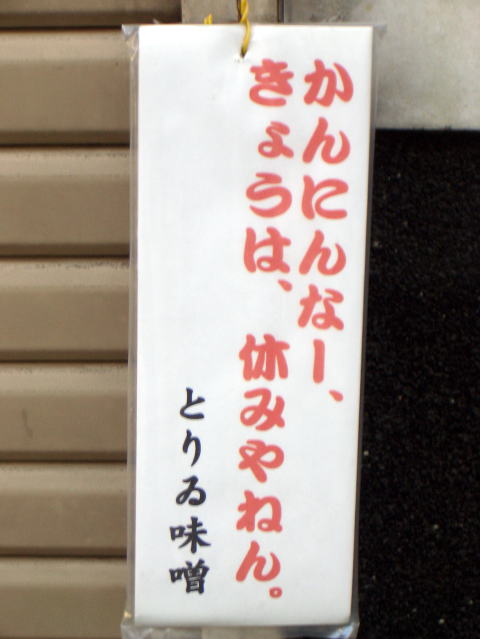 かんにんなー、
きょうは、休みやねん。
とりゐ味噌